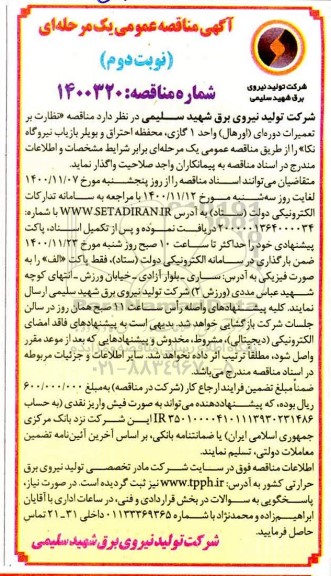 آگهی مناقصه عمومی یک مرحله‌ای
(نوبت دوم)
شماره مناقصه: ۱۴۰۰۳۲۰
شرکت تولید نیروی
برق شهید سلیمی
شرکت تولید نیروی برق شهید سلیمی در نظر دارد مناقصه «نظارت بر
تعمیرات دوره‌ای (اورهال) واحد ۱ گازی، محفظه احتراق و بویلر بازیاب نیروگاه
نکا» را از طریق مناقصه عمومی یک مرحله‌ای برابر شرایط مشخصات و اطلاعات
مندرج در اسناد مناقصه به پیمانکاران واجد صلاحیت واگذار نماید.
متقاضیان می‌توانند اسناد مناقصه را از روز پنجشنبه مورخ ۱۴۰۰/۱۱/۰۷
لغایت روز سه‌شنبه مورخ ۱۴۰۰/۱۱/۱۲ با مراجعه به سامانه تدارکات
الکترونیکی دولت (ستاد) به آدرس WWW.SETADIRAN.IR با شماره:
دریافت نموده و پس از تکمیل اسناد، پاکت
پیشنهادی خود را حداکثر تا ساعت ۱۰ صبح روز شنبه مورخ ۱۴۰۰/۱۱/۲۳
ضمن بارگذاری در سامانه الکترونیکی دولت (ستاد)، فقط پاکت «الف» را به
صورت فیزیکی به آدرس: ساری ـ بلوار آزادی ـ خیابان ورزش ـ انتهای کوچه
شهید عباس مددی (ورزش ۲) شرکت تولید نیروی برق شهید سلیمی ارسال
نمایند. کلیه پیشنهادهای واصله رأس ساعت ۱۱ صبح همان روز در سالن
جلسات شرکت بازگشایی خواهد شد. بدیهی است به پیشنهادهای فاقد امضای
الکترونیکی (دیجیتالی)، مشروط، مخدوش و پیشنهادهایی که بعد از موعد مقرر
واصل شود، مطلقا ترتیب اثر داده نخواهد شد. سایر اطلاعات و جزئیات مربوطه
در اسناد مناقصه مندرج می‌باشد.
ضمناً مبلغ تضمین فرایند ارجاع کار (شرکت در مناقصه) به‌مبلغ ۶۰۰/۰۰۰/۰۰۰
ریال بوده، که پیشنهاددهنده می‌تواند به صورت فیش واریز نقدی (به حساب
این شرکت نزد بانک مرکزی
جمهوری اسلامی ایران) یا ضمانتنامه بانکی، بر اساس آخرین آئین‌نامه تضمین
معاملات دولتی، تسلیم نمایند.
اطلاعات مناقصه فوق در سایت شرکت مادر تخصصی تولید نیروی برق
حرارتی کشور به آدرس: www.tpph.ir نیز ثبت گردیده است. در صورت نیاز،
پاسخگویی به سوالات در بخش قراردادی و فنی، در ساعات اداری با آقایان
ابراهیم‌زاده و محمدنژاد با شماره ۰۱۱۳۳۳۶۹۳۶۵ داخلی ۳۱ـ۲۱ تماس
حاصل فرمایید.
شرکت تولید نیروی برق شهید سلیمی